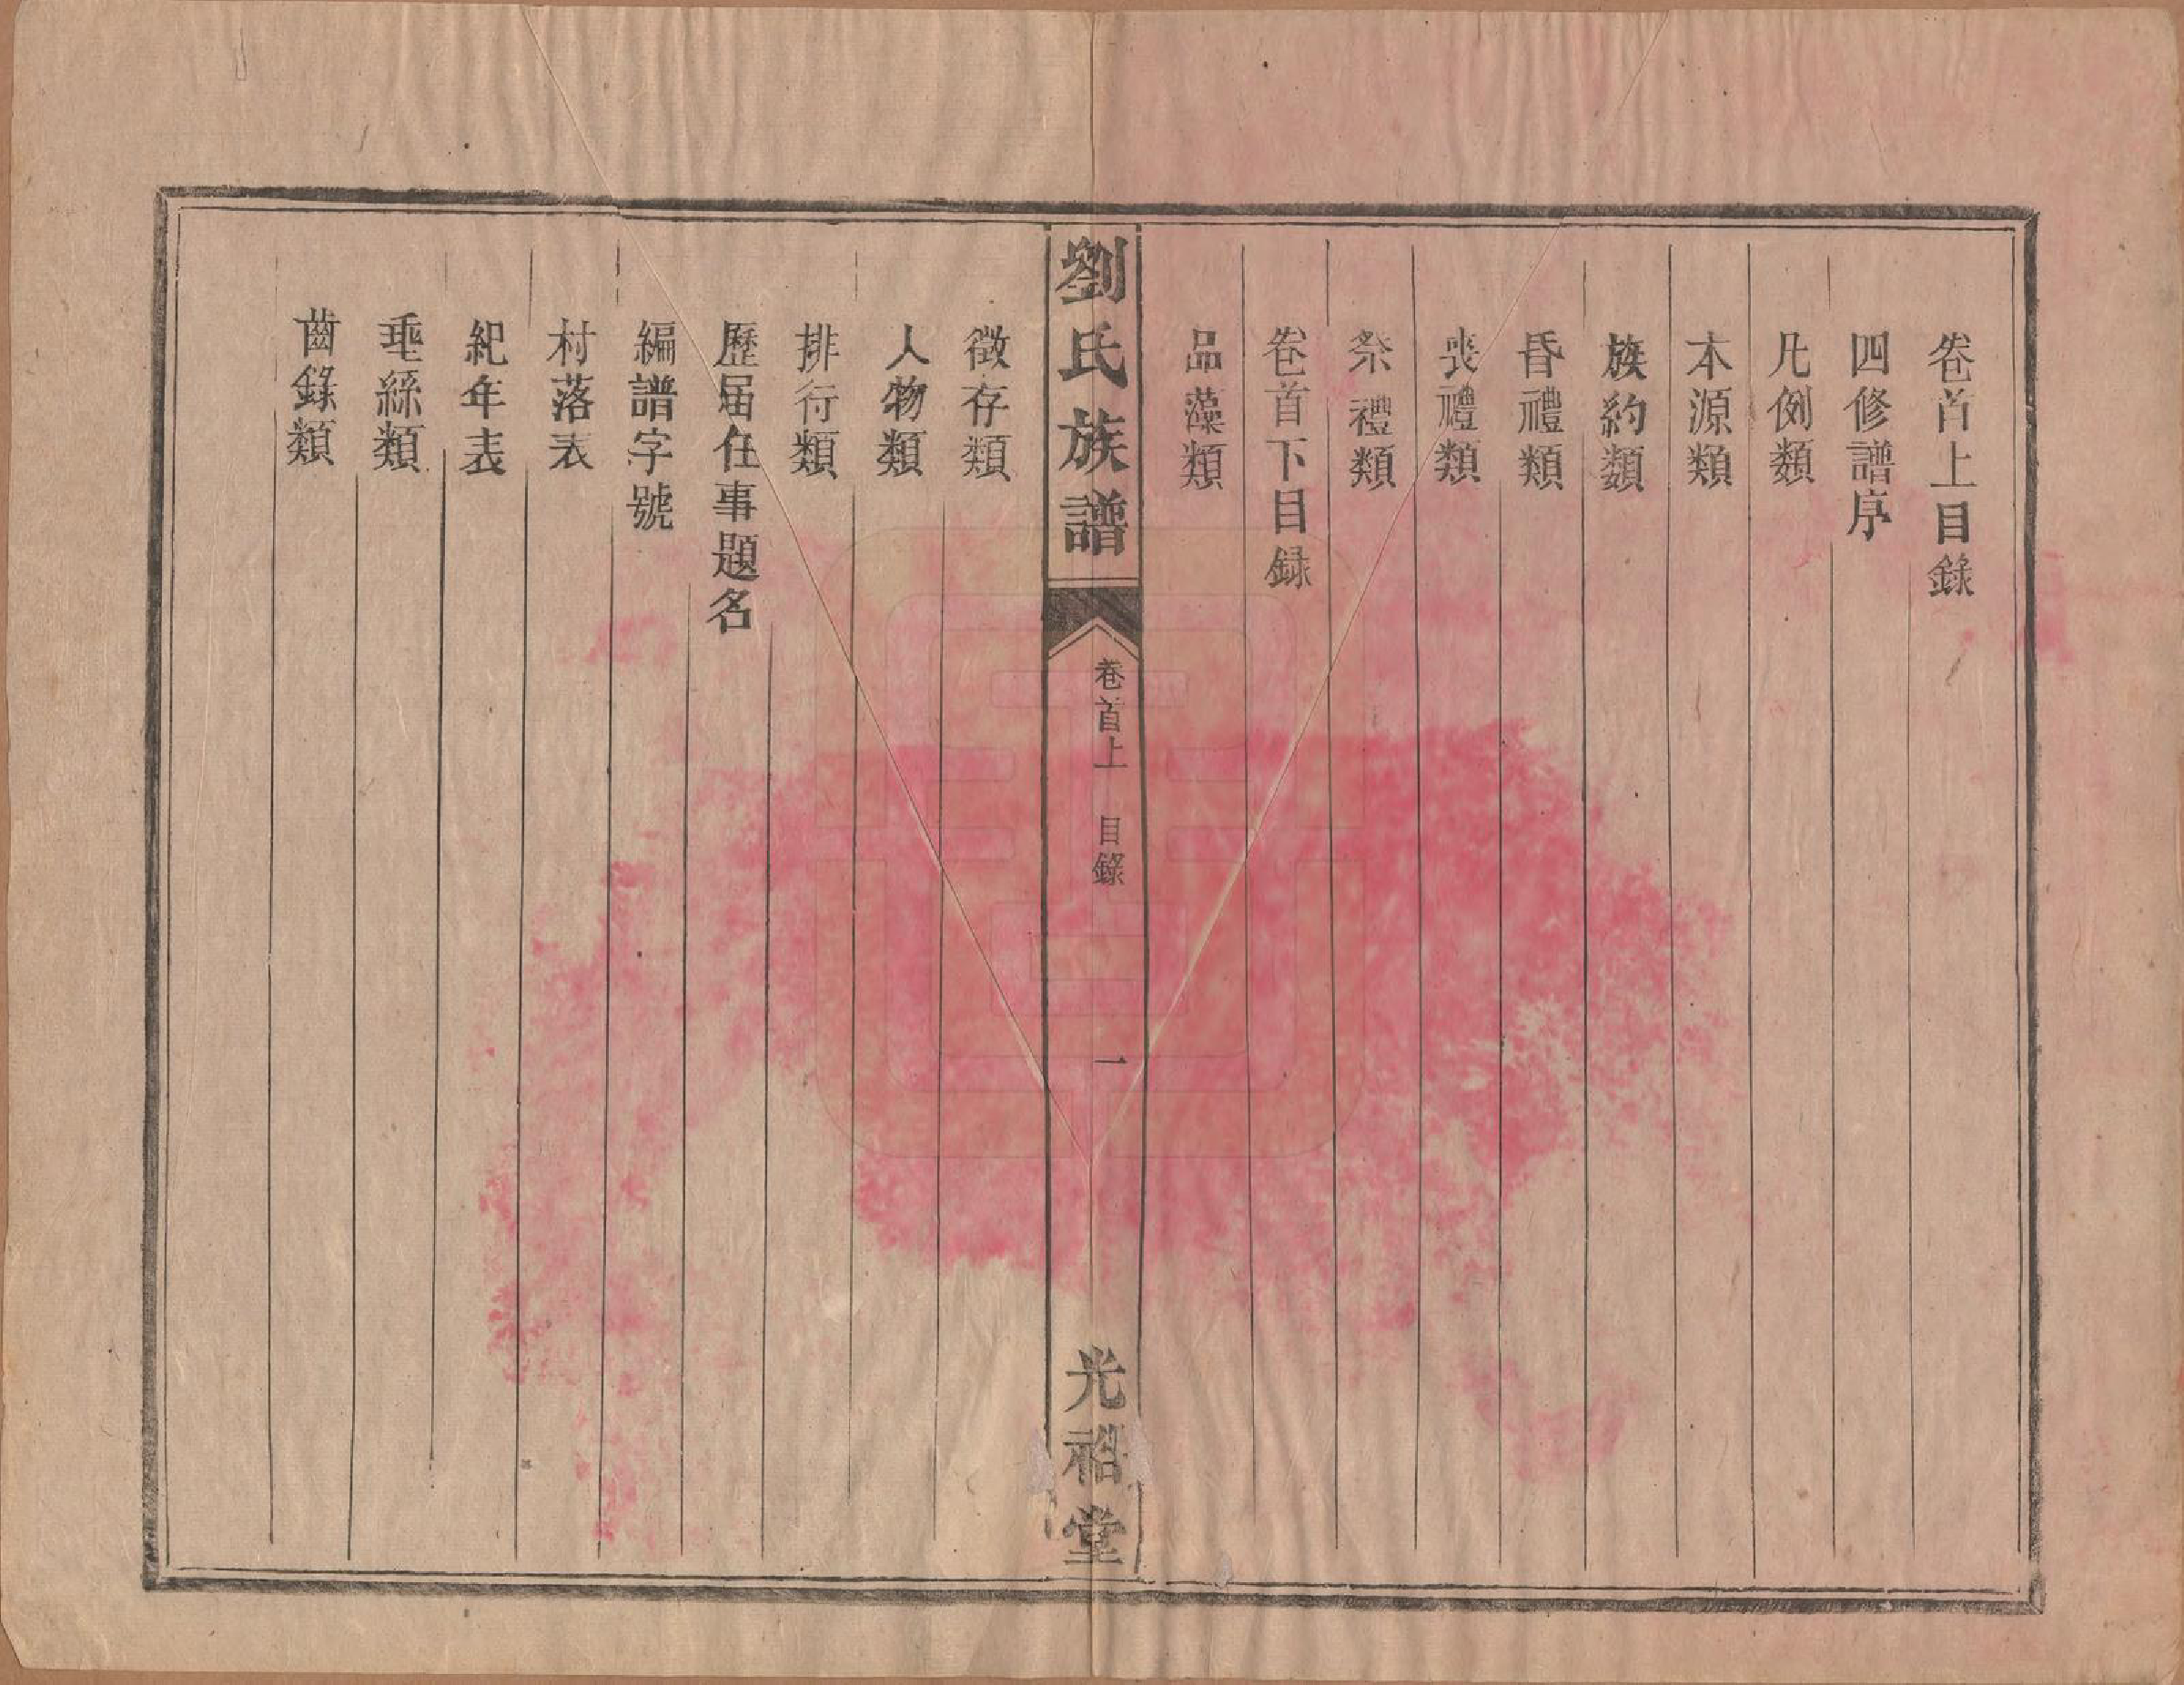 卷首上目錄
四修譜序
凡例類
本源類
族約類
昏禮類
喪禮類
祭禮類
卷首下目録
品藻類
劉氏族譜
卷首上 目錄
一
光祒堂
徵存類
人物類
排行類
歷届任事題名
編譜字號
村落表
紀年表
垂絲類
齒錄類